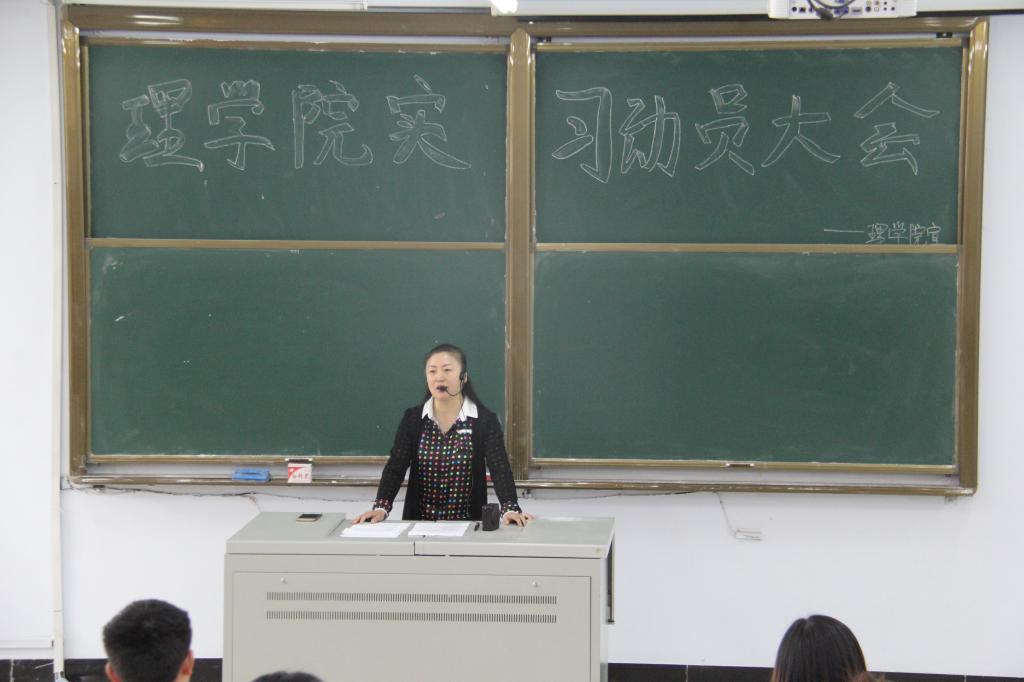 理学院实习动员大会
——理学院宣